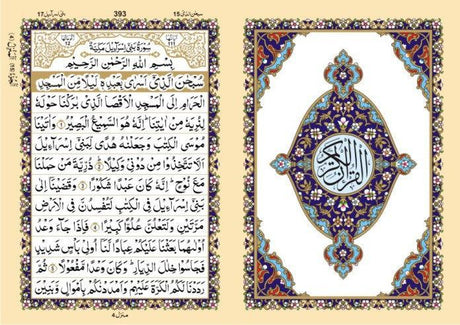 سبحٰن الذی ۱۵ 393 بنی اسرآءیل 17
سُوْرَةُ بَنِیْۤ اِسْرَآءِیْلَ مَکِّیَّةٌ
بِسْمِ اللّٰهِ الرَّحْمٰنِ الرَّحِیْمِ
سُبْحٰنَ الَّذِیْۤ اَسْرٰی بِعَبْدِهٖ لَیْلًا مِّنَ الْمَسْجِدِ
الْحَرَامِ اِلَی الْمَسْجِدِ الْاَقْصَا الَّذِیْ بٰرَکْنَا حَوْلَهٗ
لِنُرِیَهٗ مِنْ اٰیٰتِنَا ؕ اِنَّهٗ هُوَ السَّمِیْعُ الْبَصِیْرُ ۝۱ وَاٰتَیْنَا
مُوْسَی الْکِتٰبَ وَجَعَلْنٰهُ هُدًی لِّبَنِیْۤ اِسْرَآءِیْلَ
اَلَّا تَتَّخِذُوْا مِنْ دُوْنِیْ وَکِیْلًا ۝۲ ذُرِّیَّةَ مَنْ حَمَلْنَا
مَعَ نُوْحٍ ؕ اِنَّهٗ کَانَ عَبْدًا شَکُوْرًا ۝۳ وَقَضَیْنَاۤ اِلٰی
بَنِیْۤ اِسْرَآءِیْلَ فِی الْکِتٰبِ لَتُفْسِدُنَّ فِی الْاَرْضِ
مَرَّتَیْنِ وَلَتَعْلُنَّ عُلُوًّا کَبِیْرًا ۝۴ فَاِذَا جَآءَ وَعْدُ
اُوْلٰىهُمَا بَعَثْنَا عَلَیْکُمْ عِبَادًا لَّنَاۤ اُولِیْ بَاْسٍ شَدِیْدٍ
فَجَاسُوْا خِلٰلَ الدِّیَارِ ؕ وَکَانَ وَعْدًا مَّفْعُوْلًا ۝۵ ثُمَّ
رَدَدْنَا لَکُمُ الْکَرَّةَ عَلَیْهِمْ وَاَمْدَدْنٰکُمْ بِاَمْوَالٍ وَّبَنِیْنَ
منزل ٤
القرآن الكريم